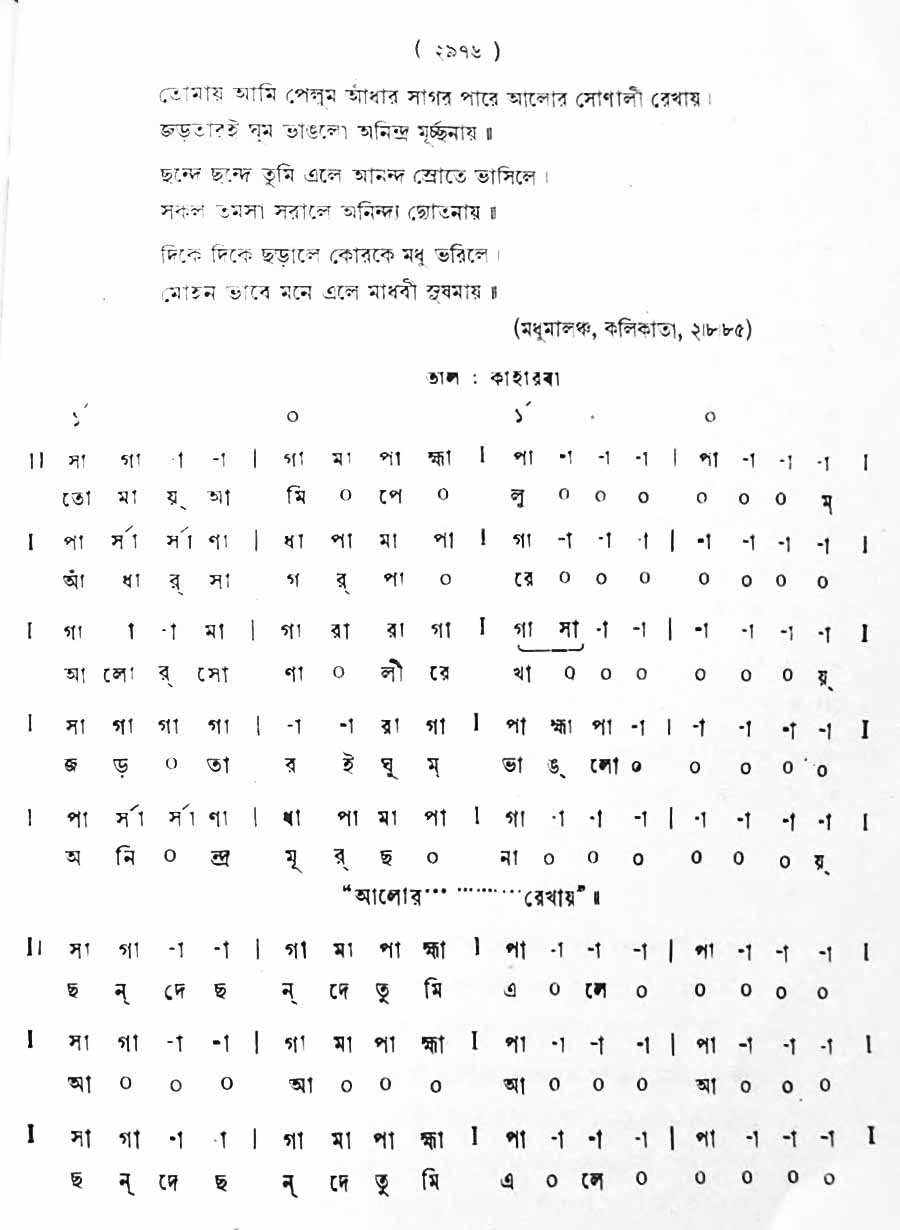 ( ২৯৭৬ )
তোমায় আমি পেলুম আঁধার সাগর পারে আলোর সোণালী রেখায়।
জড়তারই ঘুম ভাঙলো অনিন্দ্র মূর্চ্ছনায়॥
ছন্দে ছন্দে তুমি এলে আনন্দ স্রোতে ভাসিলে।
সকল তমসা সরালে অনিন্দ্য দ্যোতনায়॥
দিকে দিকে ছড়ালে কোরকে মধু ভরিলে।
মোহন ভাবে মনে এলে মাধবী সুষমায়॥
(মধুমালঞ্চ, কলিকাতা, ২।৮।৮৫)
তাল : কাহারবা
১´ ০ ১´ ০
II সা গা -া -া | গা মা পা হ্মা I পা -া -া -া | পা -া -া -া I
তো মা য়্ আ মি ০ পে ০ লু ০ ০ ০ ০ ০ ০ ম্
I পা র্সা র্সা ণা | ধা পা মা পা I গা -া -া -া | -া -া -া -া I
আঁ ধা র্ সা গ র্ পা ০ রে ০ ০ ০ ০ ০ ০ ০
I গা া -া মা | গা রা রা গা I গা সা -া -া | -া -া -া -া I
আ লো র্ সো ণা ০ লী রে খা ০ ০ ০ ০ ০ ০ য়্
I সা গা গা গা | -া -া রা গা I পা হ্মা পা -া | -া -া -া -া I
জ ড় ০ তা র ই ঘু ম্ ভা ঙ্ লো ০ ০ ০ ০ ০
I পা র্সা র্সা ণা | ধা পা মা পা I গা -া -া -া | -া -া -া -া I
অ নি ০ ন্দ্র মূ র্ ছ ০ না ০ ০ ০ ০ ০ ০ য়্
"আলোর··· ·········রেখায়"॥
II সা গা -া -া | গা মা পা হ্মা I পা -া -া -া | পা -া -া -া I
ছ ন্ দে ছ ন্ দে তু মি এ ০ লে ০ ০ ০ ০ ০
I সা গা -া -া | গা মা পা হ্মা I পা -া -া -া | পা -া -া -া I
আ ০ ০ ০ আ ০ ০ ০ আ ০ ০ ০ আ ০ ০ ০
I সা গা -া া | গা মা পা হ্মা I পা -া -া -া | পা -া -া -া I
ছ ন্ দে ছ ন্ দে তু মি এ ০ লে ০ ০ ০ ০ ০